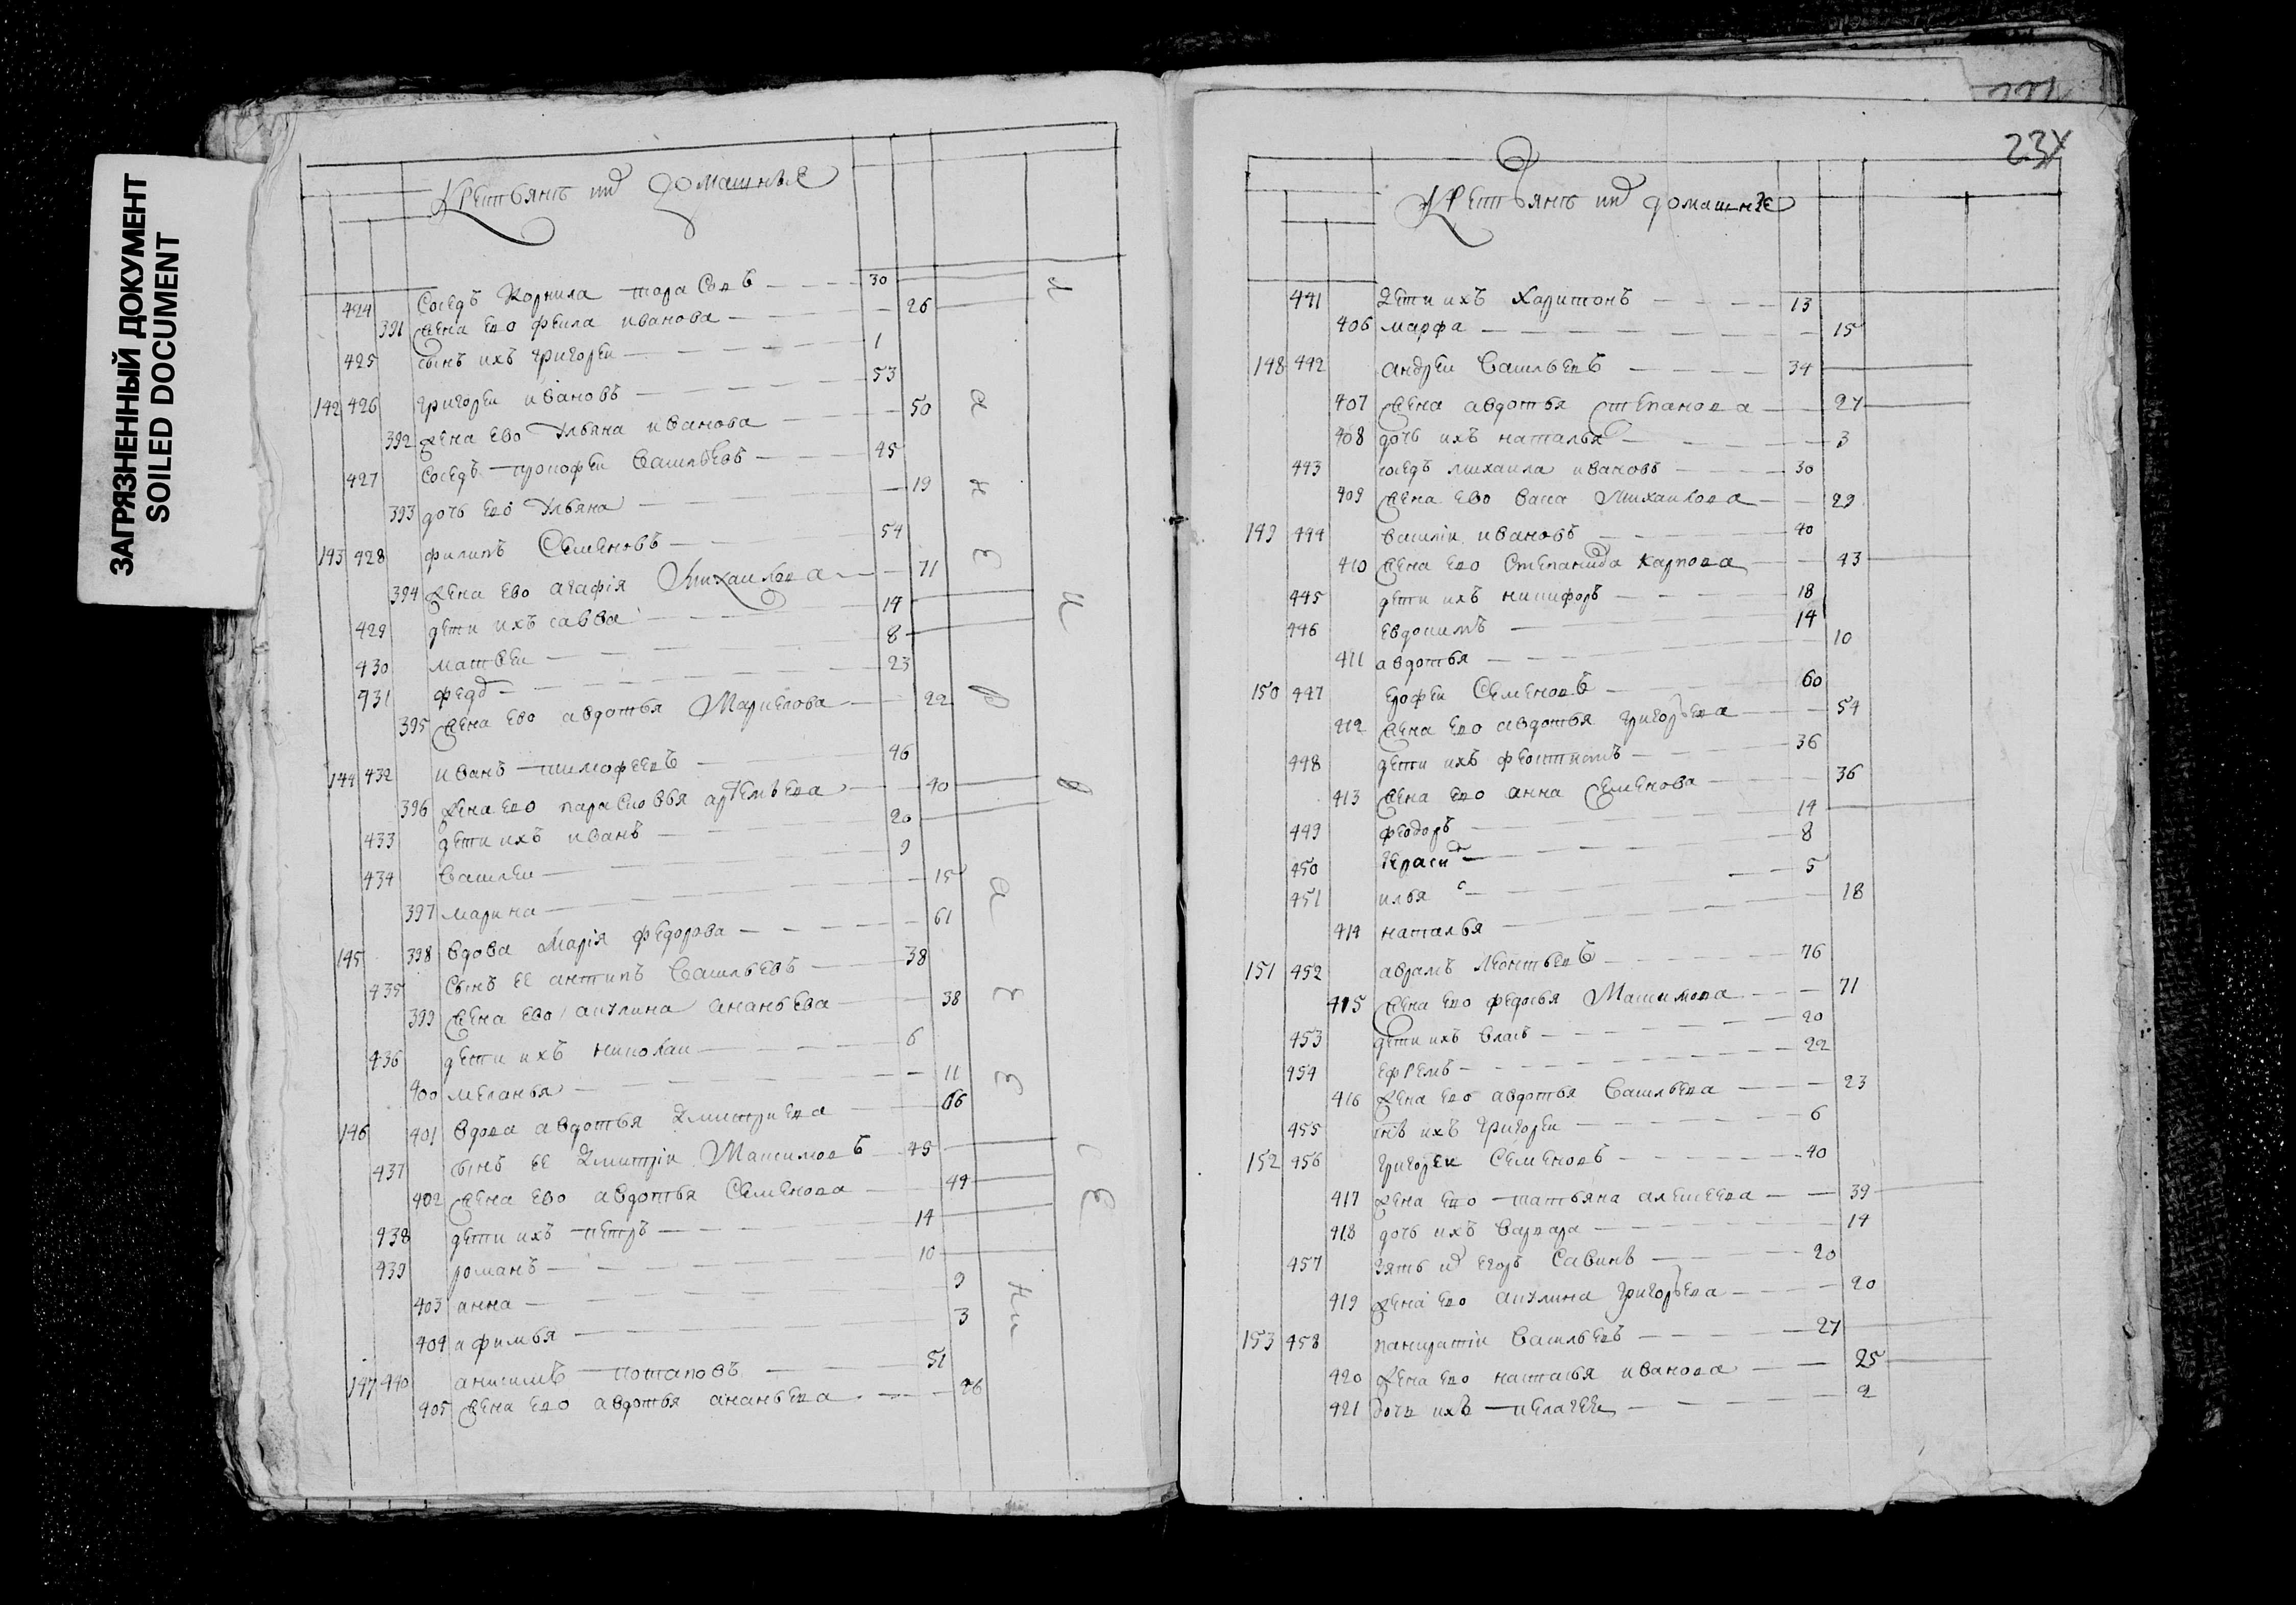 ЗАГРЯЗНЕННЫЙ ДОКУМЕНТ
SOILED DOCUMENT
Крестьянъ их домашние
424 Соседъ Корнила тарасовъ 30
391 Жена ево феила иванова 26
425 сынъ ихъ григореи 1
142 426 григореи ивановъ 53
392 жена ево Ульяна иванова 50
427 Соседъ прокофеи васильевъ 45
393 дочь ево Ульяна 19
143 428 филипъ Семеновъ 54
394 жена ево агафія Михаилова 71
429 дети ихъ савва 14
430 матвеи 8
431 федо 23
395 жена ево авдотья Маркелова 22
144 432 иванъ тимофеевъ 46
396 жена ево парасковья артемьева 40
433 дети ихъ иванъ 20
434 василеи 9
397 марина 15
145 398 вдова марія федорова 61
435 Сынъ ее антипъ васильевъ 38
399 жена ево акулина ананьева 38
436 дети ихъ николаи 6
400 меланья 11
146 401 вдова авдотья дмитриева 66
437 сынъ ее дмитріи Максимовъ 45
402 жена ево авдотья Семенова 49
438 дети ихъ петръ 14
439 романъ 10
403 анна 9
404 афимья 3
147 440 анисимъ потаповъ 51
405 жена ево авдотья ананьева 46
234
Крестьянъ их домашние
441 дети ихъ Харитонъ 13
406 марфа 15
148 442 андреи васильевъ 34
407 жена авдотья степанова 27
408 дочь ихъ наталья 3
443 соседъ михаила ивановъ 30
409 жена ево васа Михаилова 29
149 444 василіи ивановъ 40
410 жена ево Степанида карпова 43
445 дети ихъ никифоръ 18
446 евдокимъ 14
411 авдотья 10
150 447 ерофеи Семеновъ 60
412 жена ево авдотья григорьева 54
448 дети ихъ феоктистъ 36
413 жена ево анна Семенова 36
449 феодоръ 14
450 гераси 8
451 илья 5
414 наталья 18
151 452 аврамъ леонтьевъ 76
415 жена ево федосья Максимова 71
453 дети ихъ власъ 20
454 ефремъ 22
416 жена ево авдотья васильева 23
455 снъ ихъ григореи 6
152 456 григореи Семеновъ 40
417 жена ево татьяна алексеева 39
418 дочь ихъ варвара 14
457 зять их егоръ Савинъ 20
419 жена ево акулина григорьева 20
153 458 панкратіи васильевъ 27
420 жена ево настасья иванова 25
421 дочь ихъ пелагеи 2